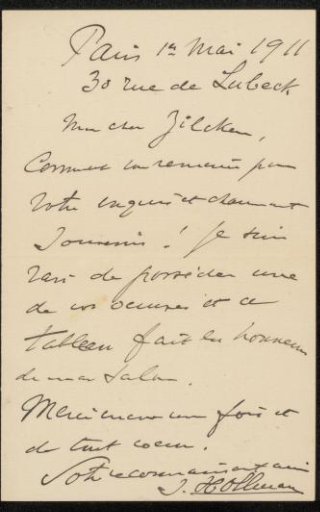 Paris 1er Mai 1911
30 rue de Lubeck
Mon cher Zilcken,
Comment vous remercier pour
votre exquis et charmant
Souvenir ! Je suis
ravi de posséder une
de vos oeuvres et ce
tableau fait les honneurs
de mon Salon.
Merci encore une fois et
de tout coeur.
Votre reconnaissant ami
J. Hollman